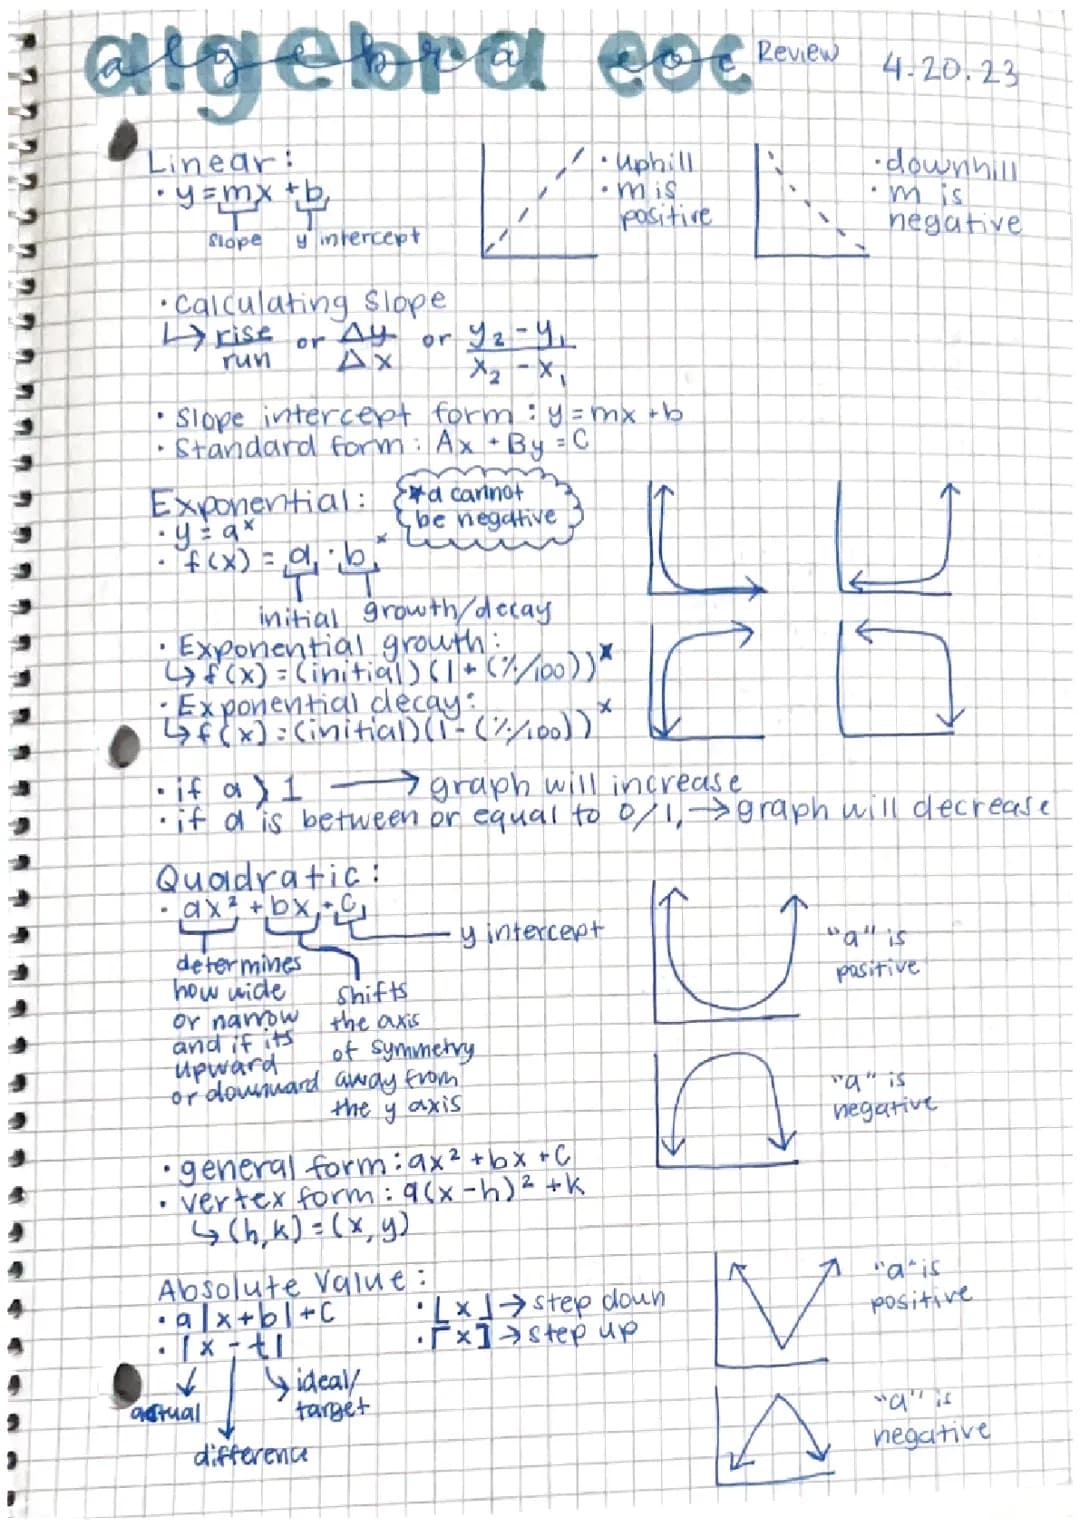 algebra eoc Review 4.20.23
Linear:
• y = mx + b
slope y intercept
• uphill
• m is
positive
• downhill
• m is
negative
• Calculating Slope
↳ rise/run or Δy/Δx or y₂-y₁/x₂-x₁
• Slope intercept form: y = mx + b
• Standard form: Ax + By = C
Exponential:
*a cannot
be negative
• y = aˣ
• f(x) = a · bˣ
initial growth/decay
• Exponential growth:
↳ f(x) = (initial)(1 + (%/100))ˣ
• Exponential decay:
↳ f(x) = (initial)(1 - (%/100))ˣ
• if a > 1 → graph will increase
• if a is between or equal to 0/1, → graph will decrease
Quadratic:
• ax² + bx + C
y intercept
determines
how wide
or narrow
and if its
upward
or downward
shifts
the axis
of symmetry
away from
the y axis
"a" is
positive
"a" is
negative
• general form: ax² + bx + C
• vertex form: a(x-h)² + k
↳ (h,k) = (x,y)
Absolute Value:
• a|x+b|+C
• |x - t|
actual
difference
ideal/
target
• ⌊x⌋ → step down
• ⌈x⌉ → step up
"a" is
positive
"a" is
negative